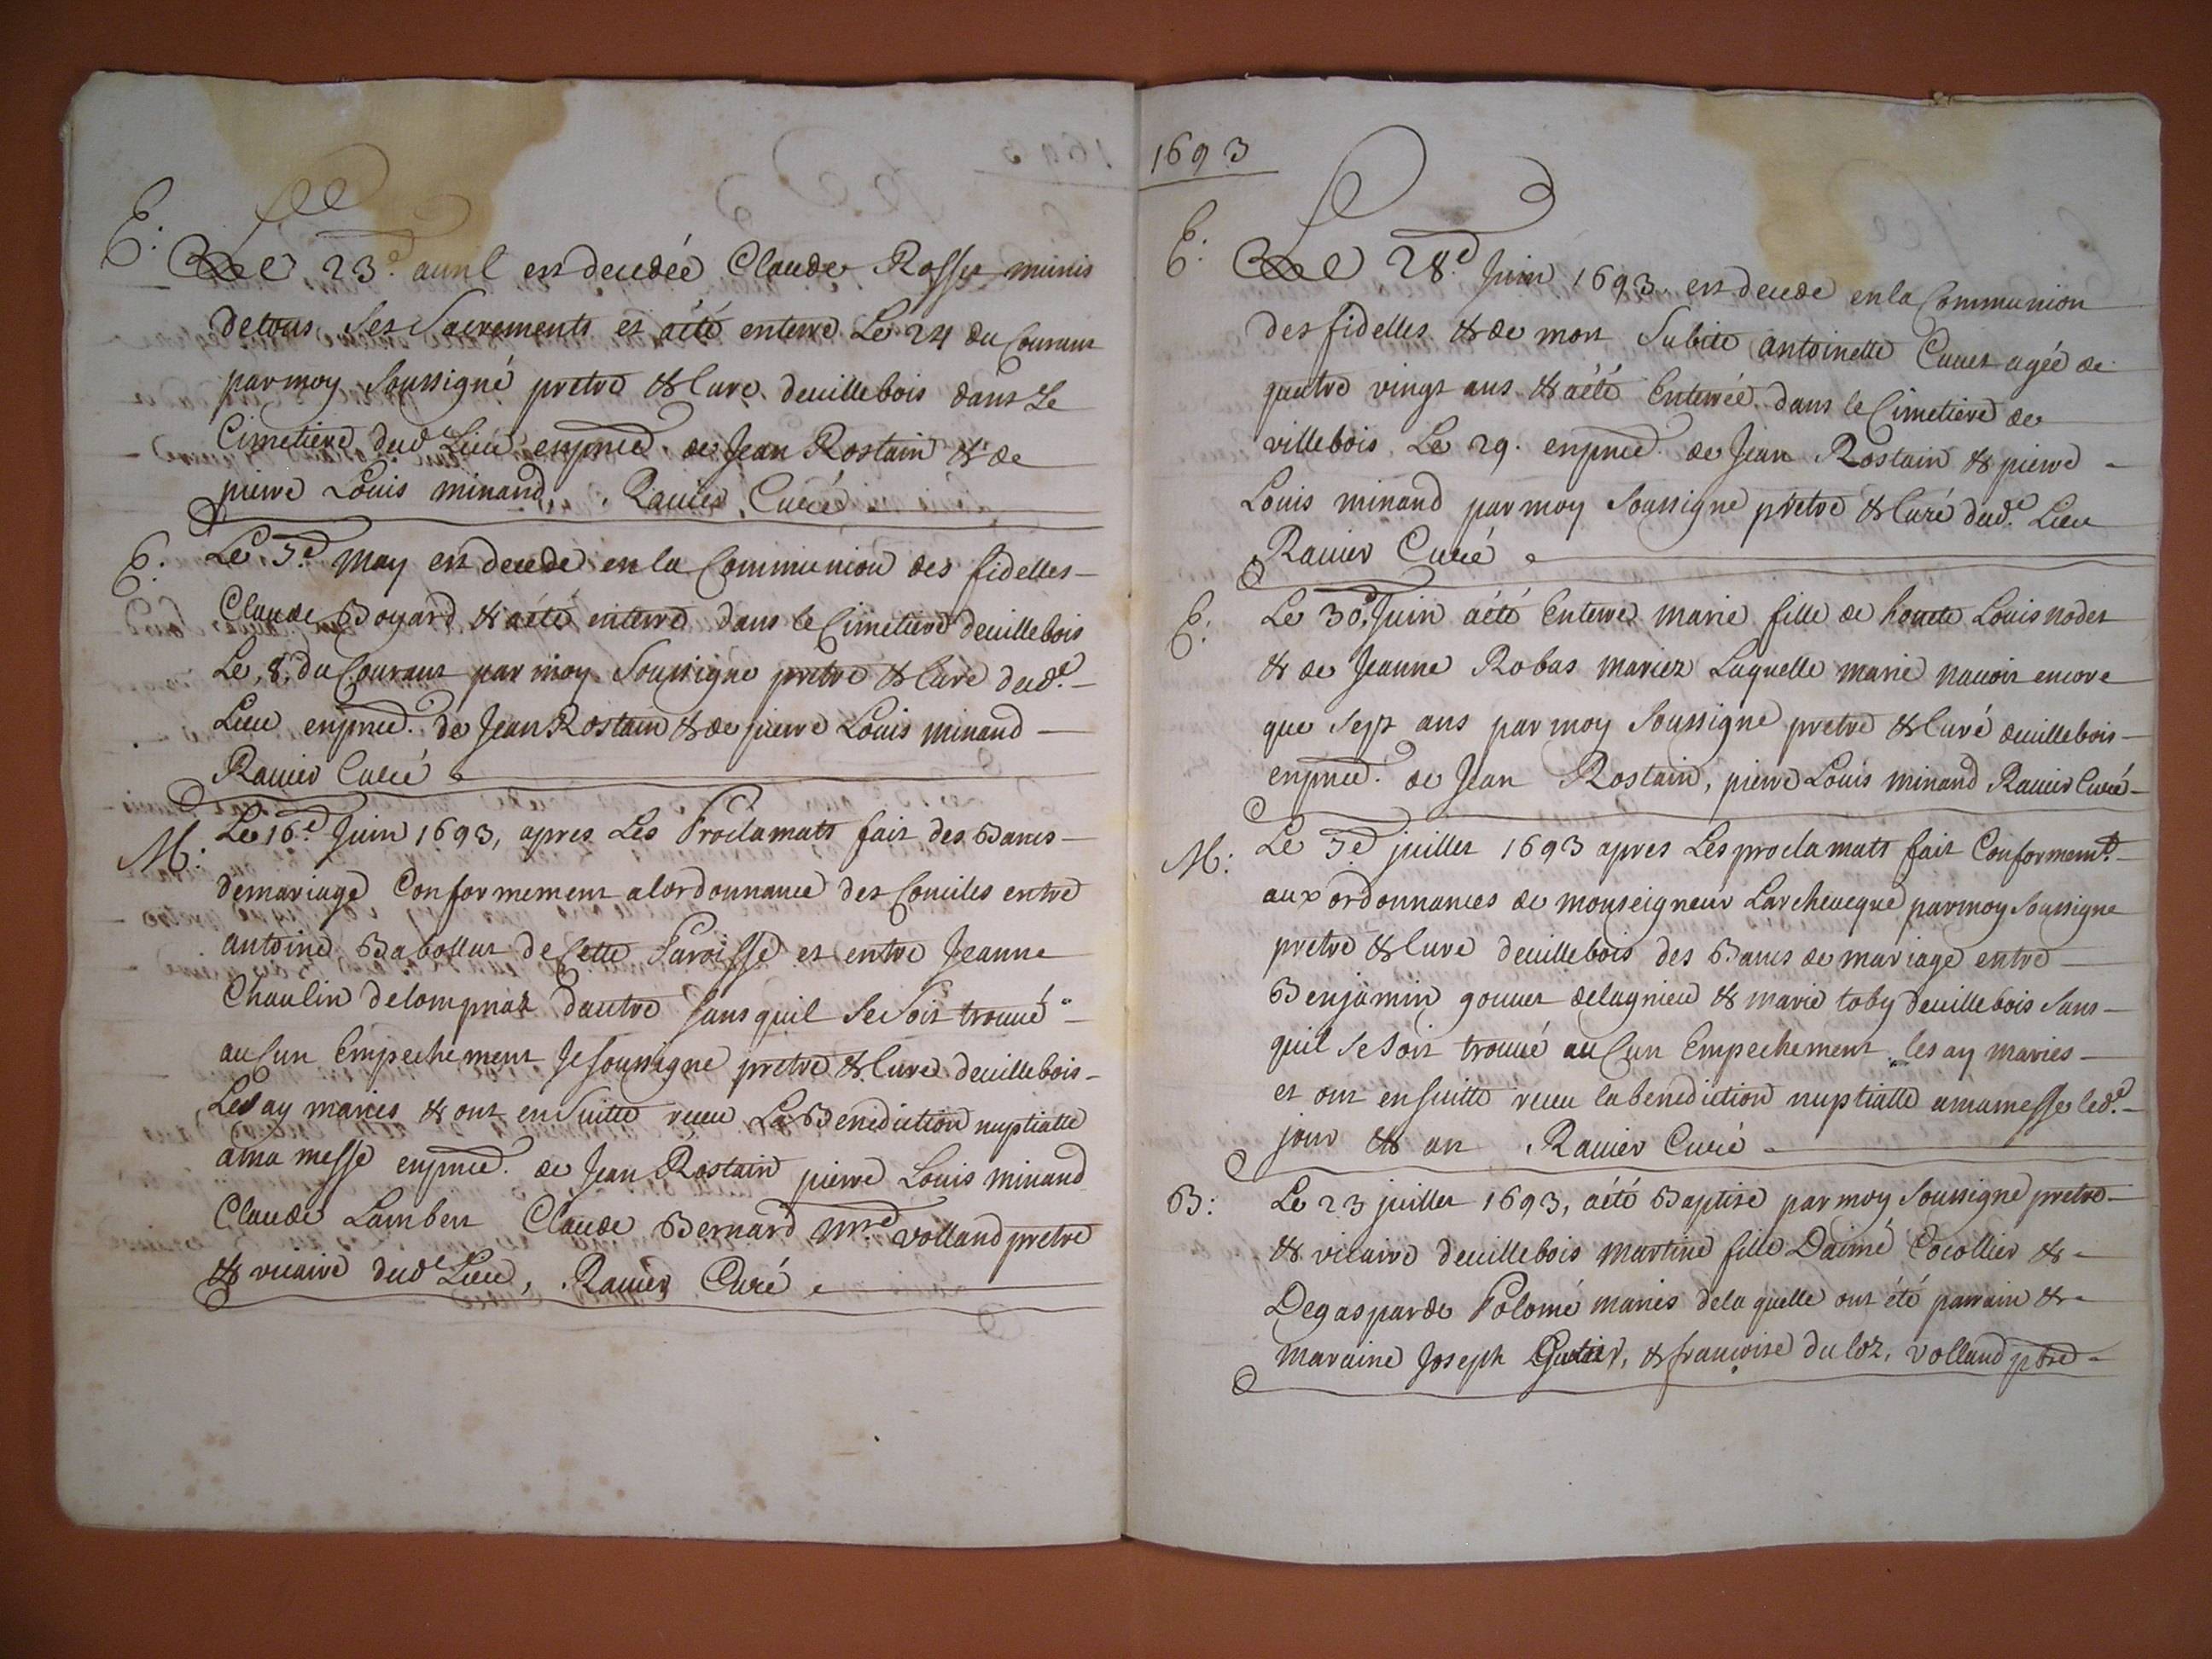 E:
Le 23e. auril est decedée Claude Rosset minis
detous Ses Sacrements et aété enterré Le 24 du Courant
parmoy Soussigné pretre & Curé deuillebois dans Le
Cimetiere dudt Lieu enpnce. de Jean Rostain & de
pierre Louis minand. Rauier Curé
E:
Le 7e. may est decedé en la Communion des fidelles
Claude Boyard & aété enterré dans le Cimetiere deuillebois
Le, 8, du Courant par moy Soussigne pretre & Curé dudt.
Lieu enpnce. de Jean Rostain & de pierre Louis minand
Rauier Curé
M:
Le 16e. Juin 1693, apres Les Proclamats fait des Bancs
demariage Conformement alordonnance des Conciles entre
antoine Babollat de Cette Paroisse et entre Jeanne
Chaulin delompnaz dautre sans quil Se Soit trouué
auCun Empechement Je Soussigne pretre & Curé deuillebois
Les ay maries & ont en Suitte receu La Benediction nuptialle
ama messe enpnce. de Jean Rostain pierre Louis minand
Claude Lambert Claude Bernard mre. volland pretre
& vicaire dudt Lieu, Rauier Curé
1693
E:
Le 28e. Juin 1693. est decedé en la Communion
des fidelles & de mort Subite antoinette Cuuet agée de
quatre vingt ans & aété Enterrée dans le Cimetiere de
villebois Le 29. enpnce. de Jean Rostain & pierre
Louis minand par moy Soussigne prêtre & Curé dudt. Lieu
Rauier Curé
E:
Le 30e. Juin aété Enterré marie fille de honete Louis nodet
& de Jeanne Robas mariez Laquelle marie nauoit encore
que Sept ans par moy Soussigné pretre & Curé deuillebois
enpnce. de Jean Rostain, pierre Louis minand Rauier Curé
M:
Le 7e. juillet 1693 apres Les proclamats fait Conformemt.
aux ordonnances de monseigneur Larcheuecque parmoy Soussigne
pretre & Curé deuillebois des Bancs de mariage entre
Benjamin gouuet delagnieu & marie toby deuillebois Sans
quil Se Soit trouué auCun Empechement les ay maries
et ont ensuitte receu la benediction nuptialle amamesse ledt.
jour & an Rauier Curé
B:
Le 23 juillet 1693, aété Baptisé par moy Soussigné pretre
& vicaire deuillebois martine fille Daimé Cocollier &
Degasparde Polomé maries dela quelle ont été parrain &
maraine Joseph & francoise du loz, volland ptre